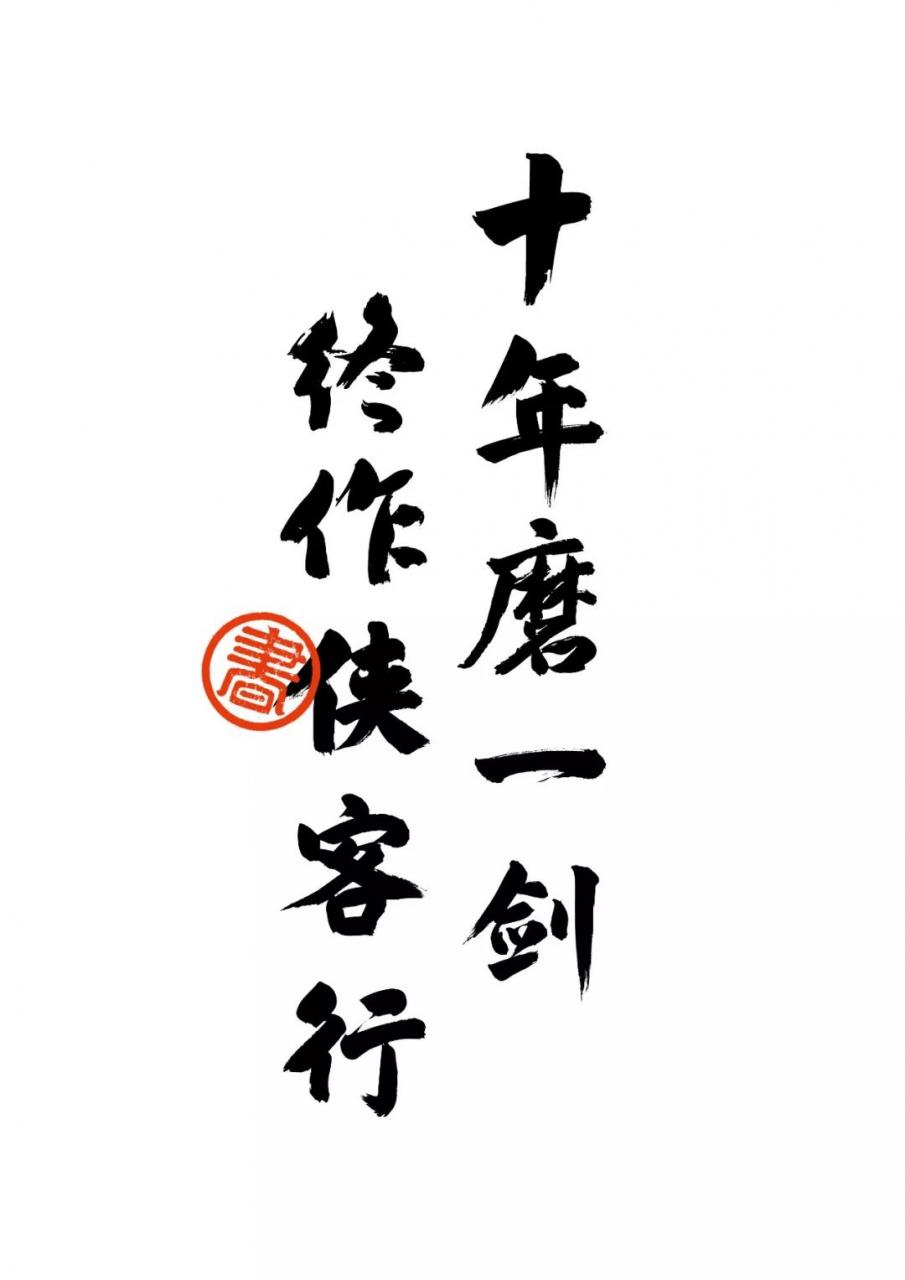 十年磨一剑
终作侠客行
書